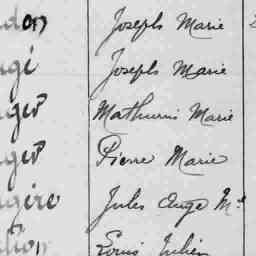 on Joseph Marie
gé Joseph Marie
ger Mathurin Marie
ger Pierre Marie
gère Jules Ange Mie
lion Louis Julien